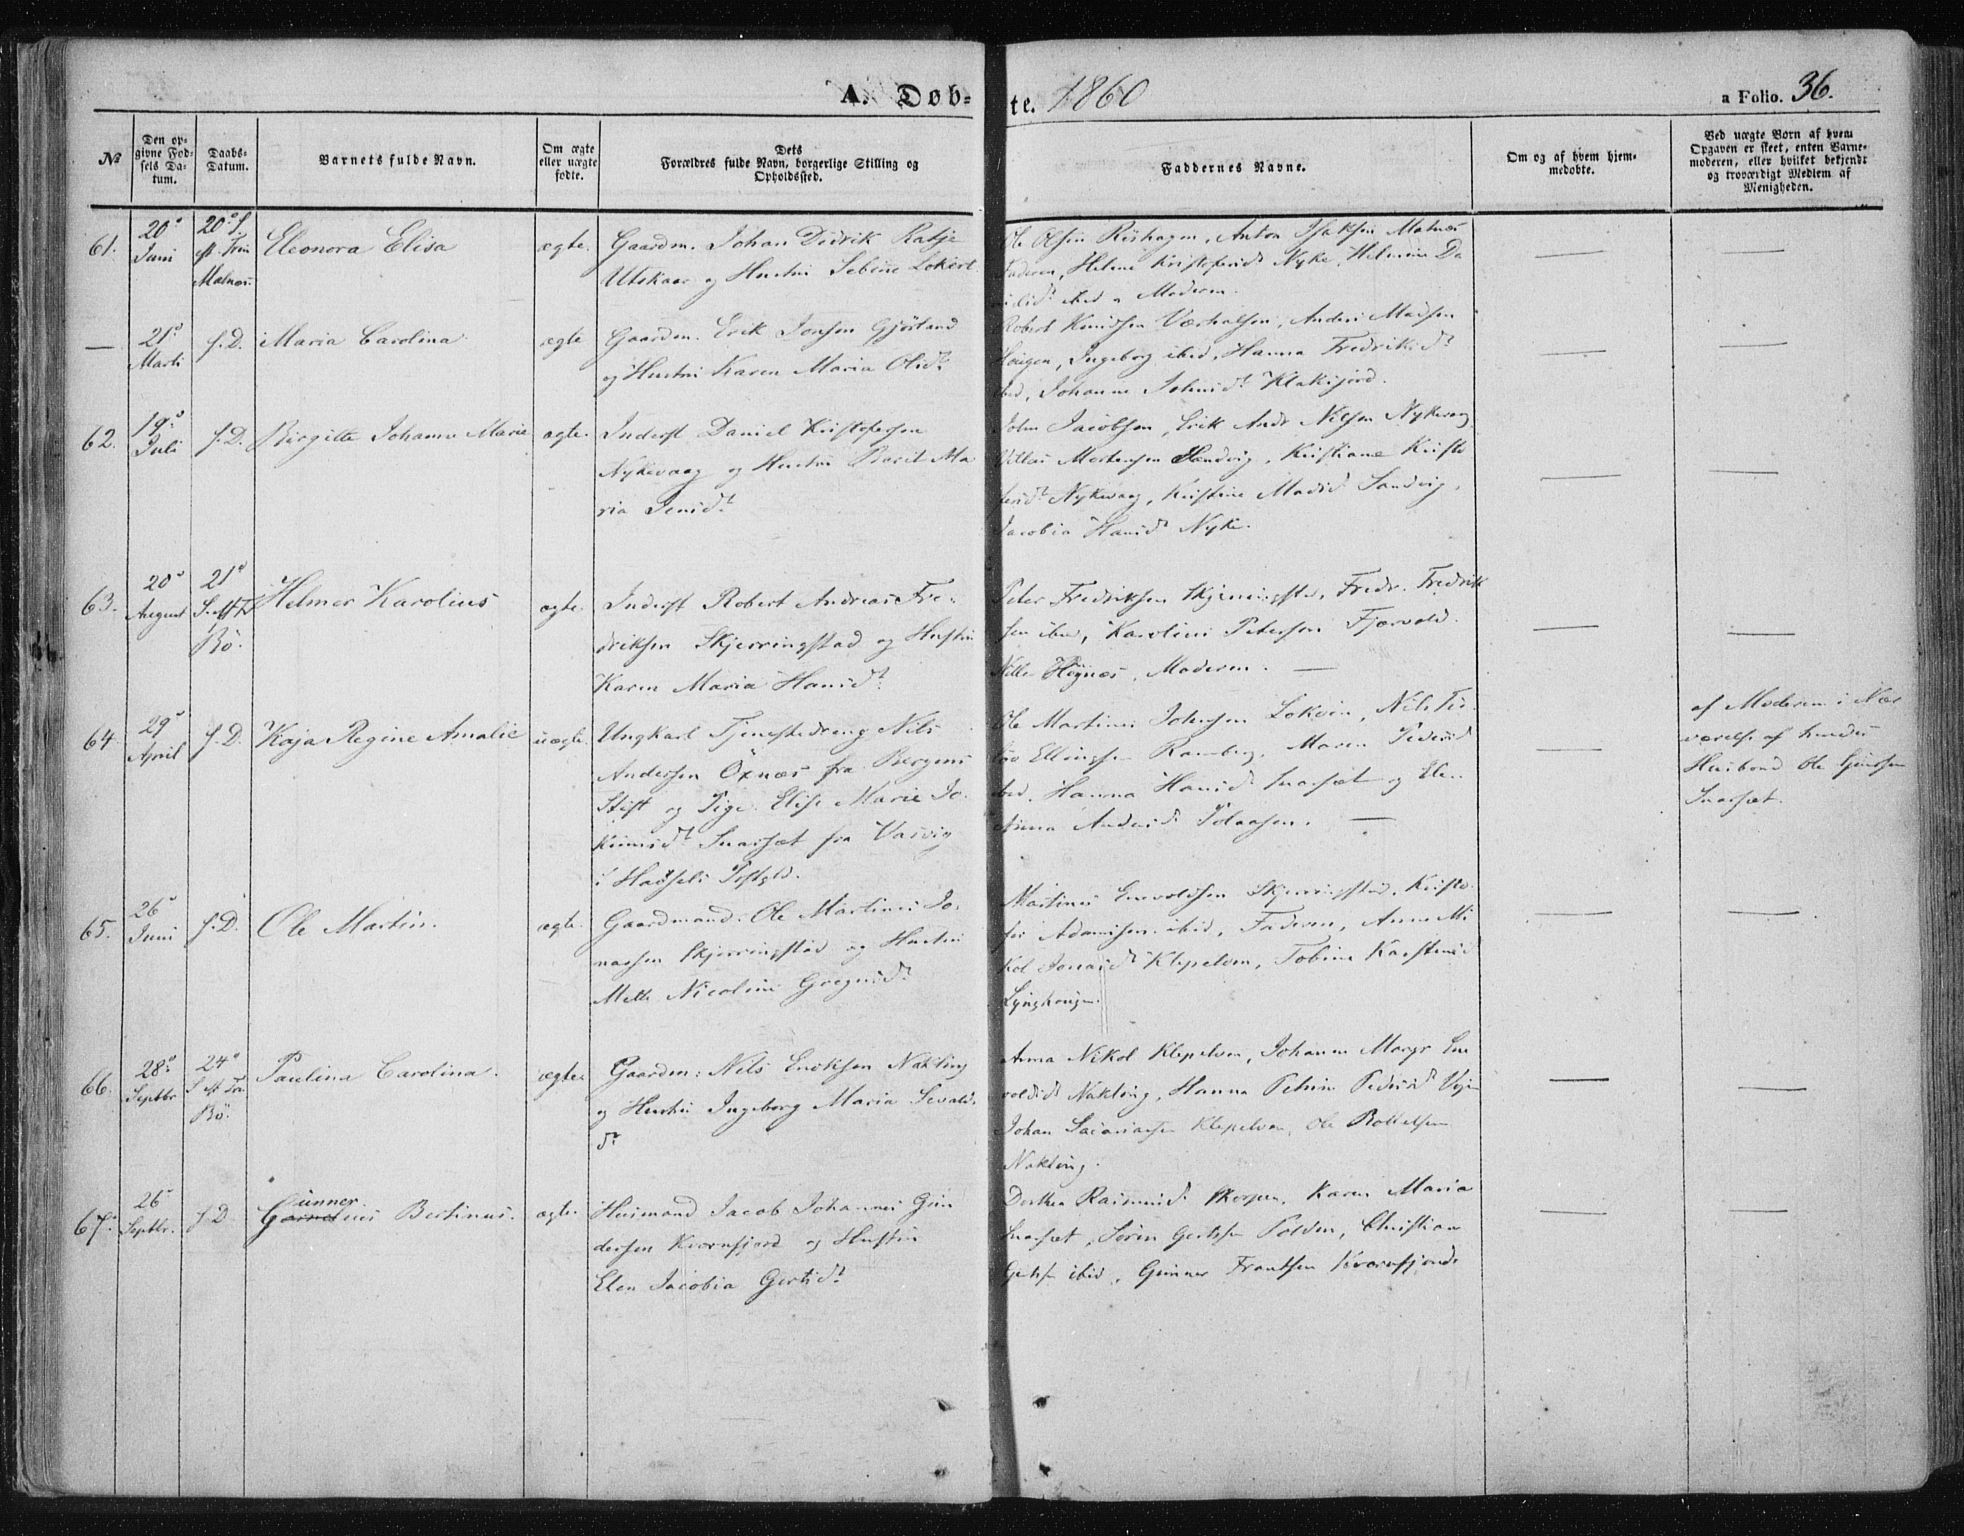 A. Døbte. 1860
a Folio. 36.
№
Den opgivne Fødsels Datum.
Daabs-Datum.
Barnets fulde Navn.
Om ægte eller uægte fødte.
Dets Forældres fulde Navn, borgerlige Stilling og Opholdssted.
Faddernes Navne.
Om og af hvem hjemmedøbte.
Ved uægte Børn af hvem Opgaven er skeet, enten Barnemoderen, eller hvilket bekjendt og troværdigt Medlem af Menigheden.
61. 20de Juni 20de S. eft. Trin Malnæs Eleonora Elisa ægte.
Gaardm. Johan Didrik Ratje
Utskaar og Hustru Sebine Lokert
Ole Olsen Rishagen, Anton Isaksen Malnæs
Faderen, Helene Kristofersd. Nyke, Helmine Da
ibid og Moderen.
— 21de Marti s. D. Maria Carolina ægte
Gaardm. Erik Jonsen Gjørland
og Hustru Karen Maria Olsdt
Robert Knudsen Værhalsen, Anders Madsen
Haugen, Ingeborg ibid, Hanna Fredriksdt
ibid, Johanne Klakjord.
62. 19de Juli s. D. Birgitte Johanna Marie ægte.
Inderst Daniel Kristofersen
Nykevaag og Hustru Berit Ma
ria Jensdt
John Jacobsen, Erik Andr Nilsen Nykvaag
Mortensen Sandvig, Kristiane Kristo
fersdt Nykvaag, Kristine Madsd Sandvig,
Jacobia Hansdt Nyke.
63. 20de August 21de S. eft T Bø. Helmer Karolius ægte.
Inderst Robert Andreas Fre-
driksen Skjerringstad og Hustru
Karen Maria Hansdt
Peter Fredriksen Skjerringstad, Fredr. Fredrik
sen ibid, Karoline Petersen Fjærvold.
Høgnæs, Moderen. —
64. 29de April s. D. Kaja Regine Amalie uægte.
Ungkarl Tjenestedreng Nils
Andersen Öxnæs fra Bergens
Stift og Pige Elise Marie Jo
kumsdt Snarset fra Vasvig
i Hadsels Pstgld.
Ole Martinus Johnsen Lokvin, Nils
Ellingsen Ramberg, Maren Pedersd
ibid, Hanna Hansd Snarset og Ele-
Anna Andersd —
af Moderen i Nær
værelse af hendes
Husbond Ole
Snarset.
65. 26de Juni s. D. Ole Martin. ægte.
Gaardmand Ole Martinus Jo-
nassen Skjerringstad og Hustru
Mette Nicoline Gregersdt
Martinus Enevoldsen Skjerringstad, Kristo
fer Adamsen ibid, Faderen, Anne Ni
kol Jonasdt Klepelven, Tobine Karstensd
Lynghaugen.
66. 28de Septbr 24de S eft Tr. Bø. Paulina Carolina. ægte.
Gaardm: Nils Eriksen Nakling
og Hustru Ingeborg Maria Sevalds
dt
Anna Nikol Klepelven, Johanne Margr Ene
voldsdt Nakling, Hanna Petrine Pedersdt
Johan Klepelven, Ole
Nakling.
67. 26de Septbr. s. D Gunnerius Bertinus. ægte.
Husmand Jacob Johannes Gun
dersen Kværnfjord og Hustru
Elen Jacobia Gertsdt
Dorthea Skorpen, Karen Maria
Snarset, Sören Gertsen Polden, Christian
Gertsen ibid, Gunner Frantsen Kværnfjord